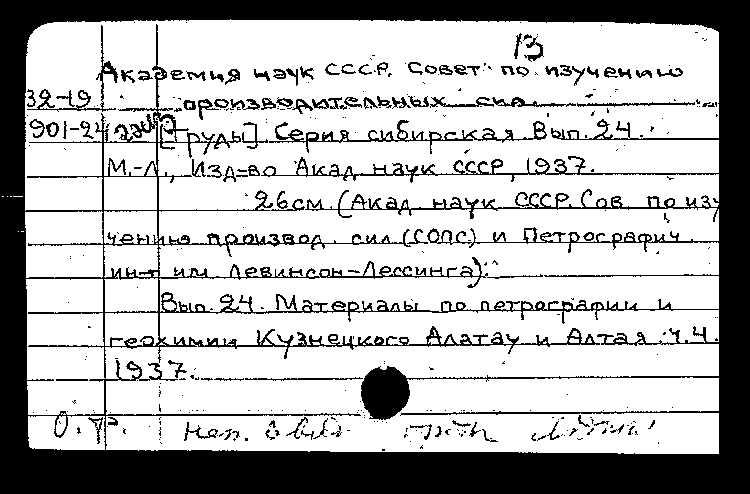 13
Академия наук СССР. Совет по изучению
32-19 производительных сил.
901-24 [Труды]. Серия сибирская. Вып. 24.
М.-Л., Изд-во Акад. наук СССР, 1937.
26см. (Акад. наук СССР. Сов. по изу
чению производ. сил (СОПС) и Петрографич.
ин-т им. Левинсон-Лессинга).
Вып. 24. Материалы по петрографии и
геохимии Кузнецкого Алатау и Алтая. ч.4.
1937.